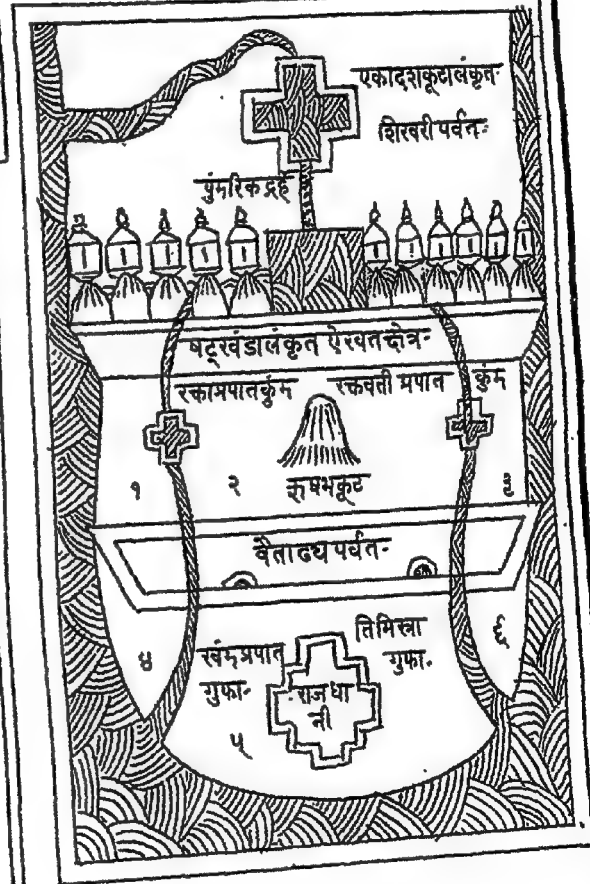 एकादशकूटालंकृत-
शिखरी पर्वत-
पुंमरिकद्रह
षट्खंडालंकृत ऐरवत क्षेत्र-
रक्ताप्रपातकुंम रक्तवती प्रपात कुंम
१ २ ऋषभकूट ३
वैताढ्य पर्वत-
४ खंमप्रपात गुफा- तिमिस्रा गुफा- ६
राजधा
नी
५